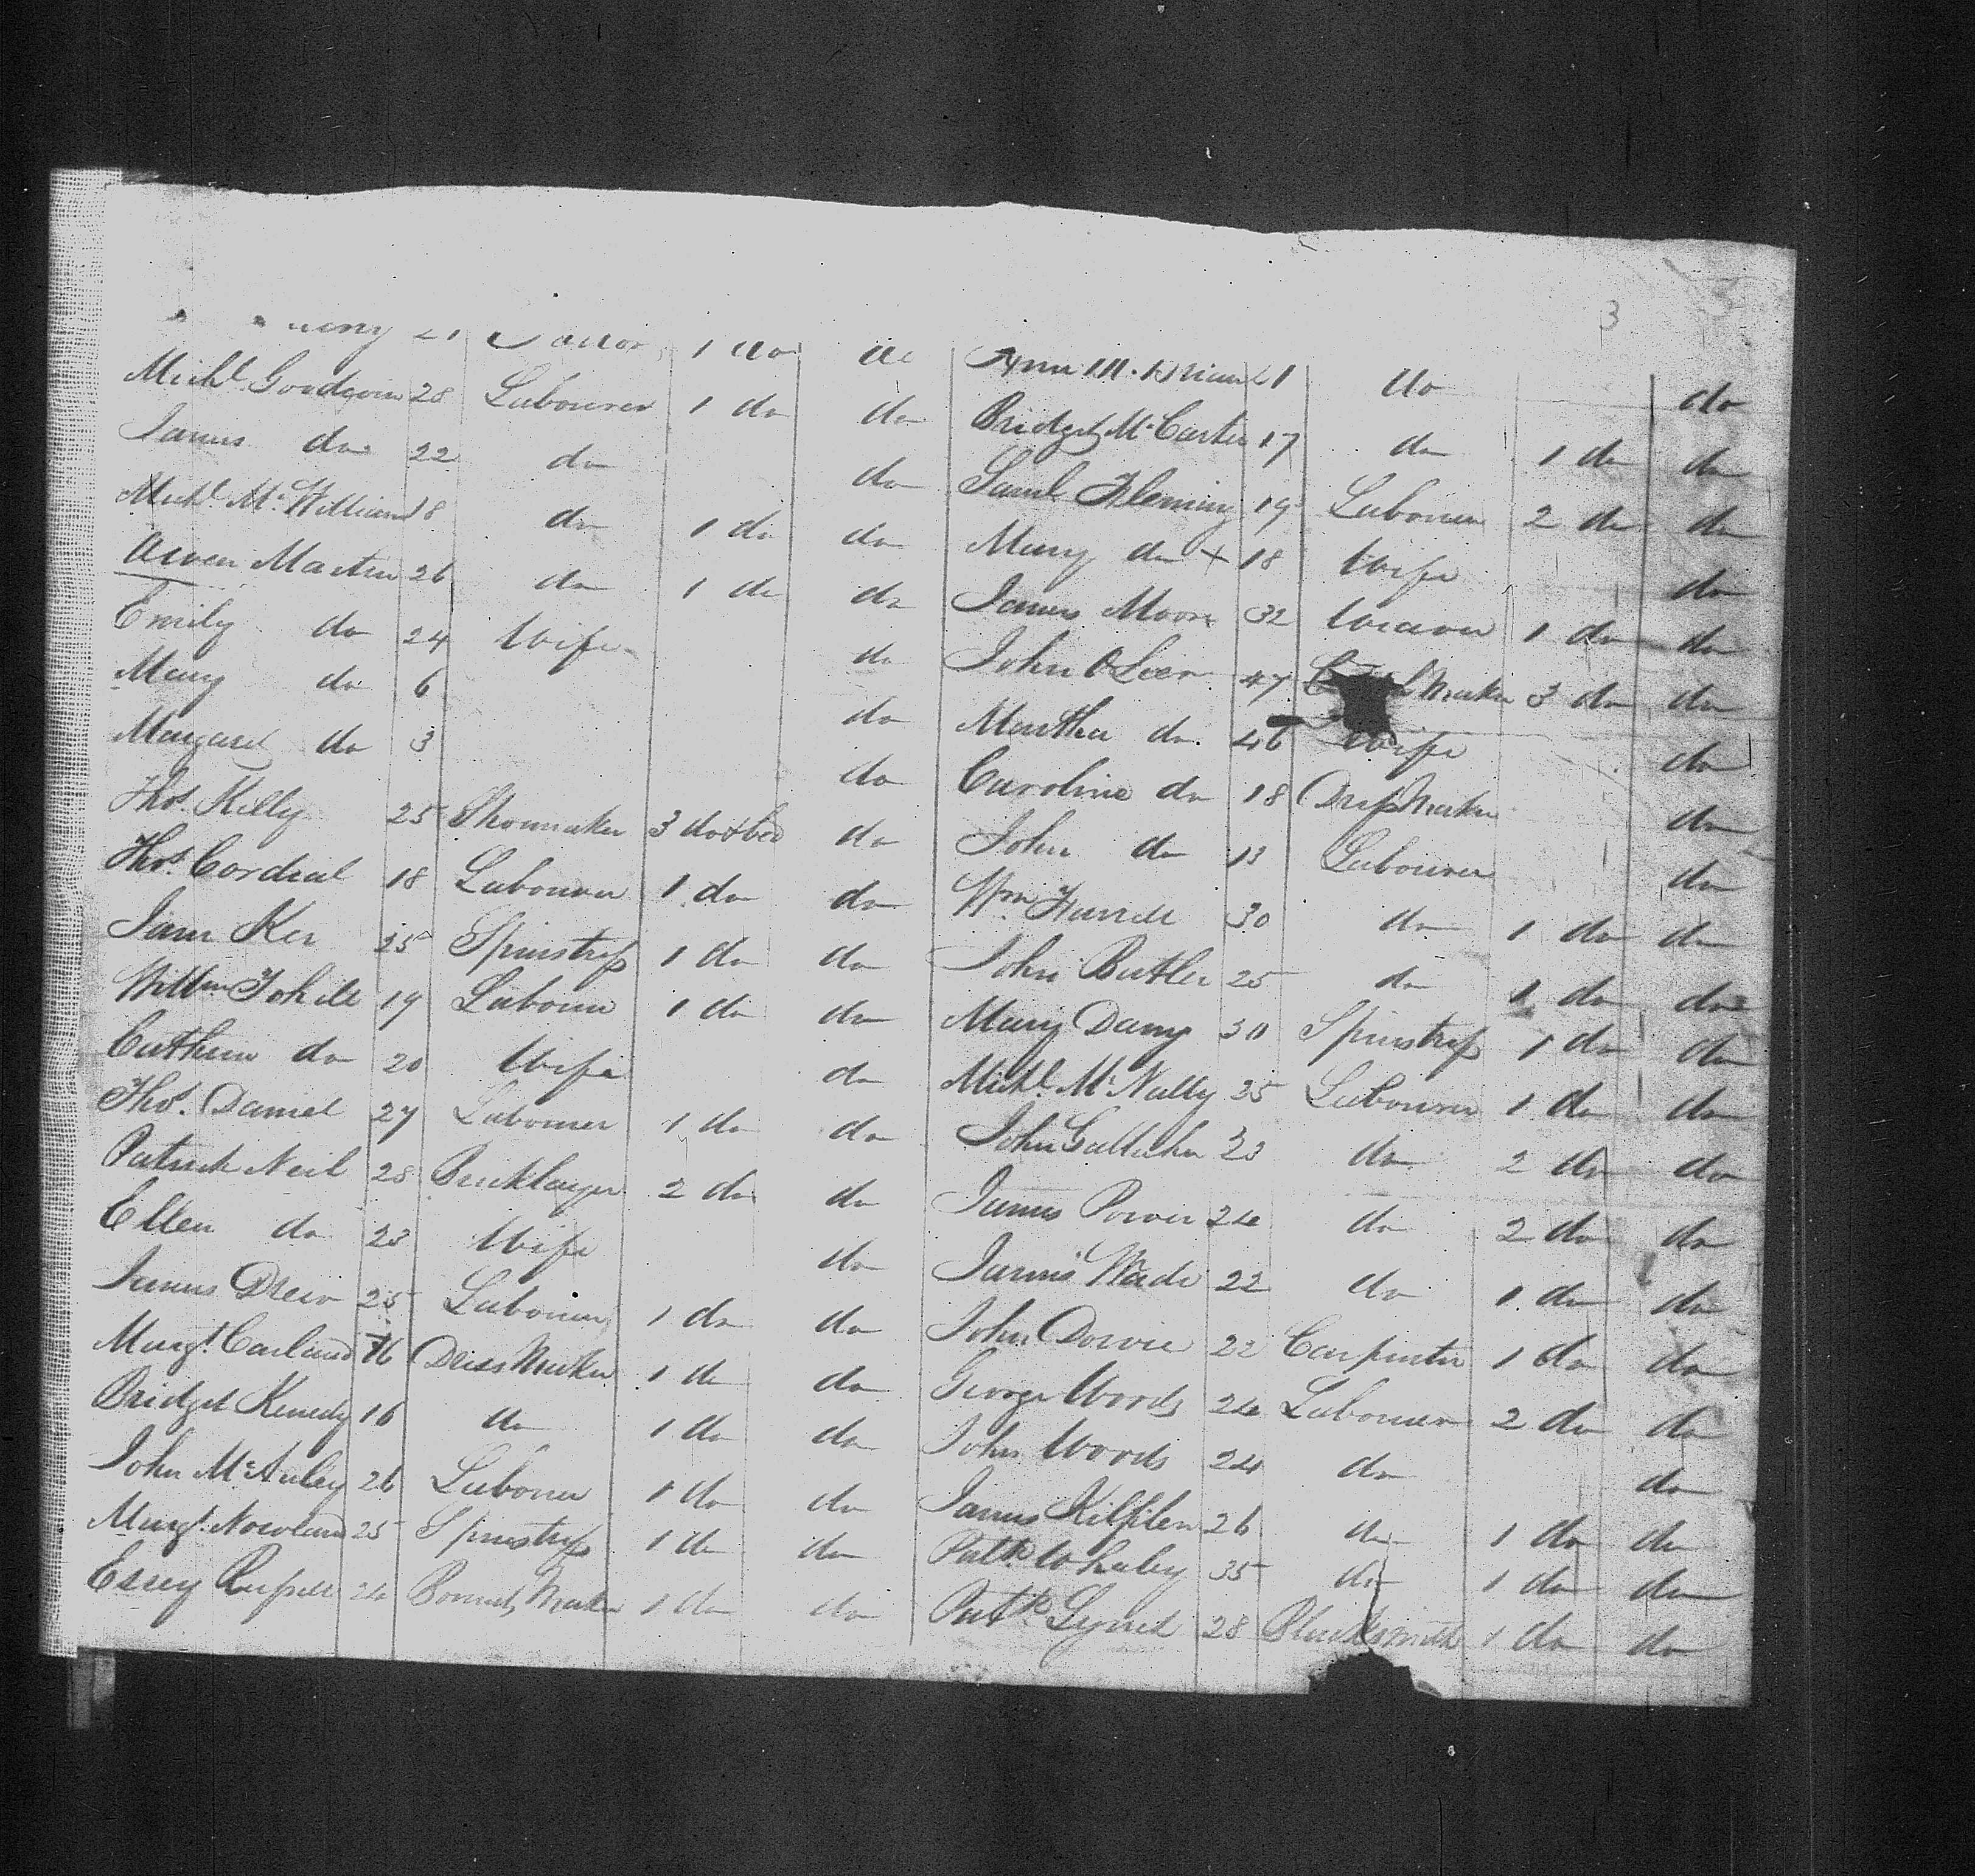 3
21 1 do
Michl. Goodwin 28 Labourer 1 do do
James do 22 do do
Michl. McWilliam 18 do 1 do do
Owen Martin 26 do 1 do do
Emily do 24 Wife do
Mary do 6 do
Margaret do 3 do
Thos. Killy 25 Shoemaker 3 do & bed do
Thos. Cordial 18 Labourer 1 do do
Jane Ker 25 Spinstress 1 do do
Willm 19 Labourer 1 do do
Cathern do 20 Wife do
Thos. Daniel 27 Labourer 1 do do
Patrick Neil 28 Bricklayer 2 do do
Ellen do 23 Wife do
James Drew 25 Labourer 1 do do
Margt. Carland 16 Dress Maker 1 do do
Bridget Kenedy 16 do 1 do do
John McAuley 26 Labourer 1 do do
Margt. Nowland 25 Spinstress 1 do do
Essey Russell 24 Bonnet Maker 1 do do
Ann do do
Bridget McCarter 17 do 1 do do
Saml Fleming 19 Labourer 2 do do
Mary do + 18 Wife do
James Moore 32 Weaver 1 do do
John 47 Maker 3 do do
Martha do 46 Wife do
Caroline do 18 Dress Maker do
John do 13 Labourer do
Wm 30 do 1 do do
John Butler 25 do 1 do do
Mary 30 Spinstress 1 do do
Michl. McNally 35 Labourer 1 do do
John Gallicher 23 do 2 do do
James Power 24 do 2 do do
James Wade 22 do 1 do do
John Dowie 22 Carpenter 1 do do
George Woods 24 Labourer 2 do do
John Woods 24 do do
James 26 do 1 do do
Patk. Whaley 35 do 1 do do
Patk. 28 Blacksmith 1 do do